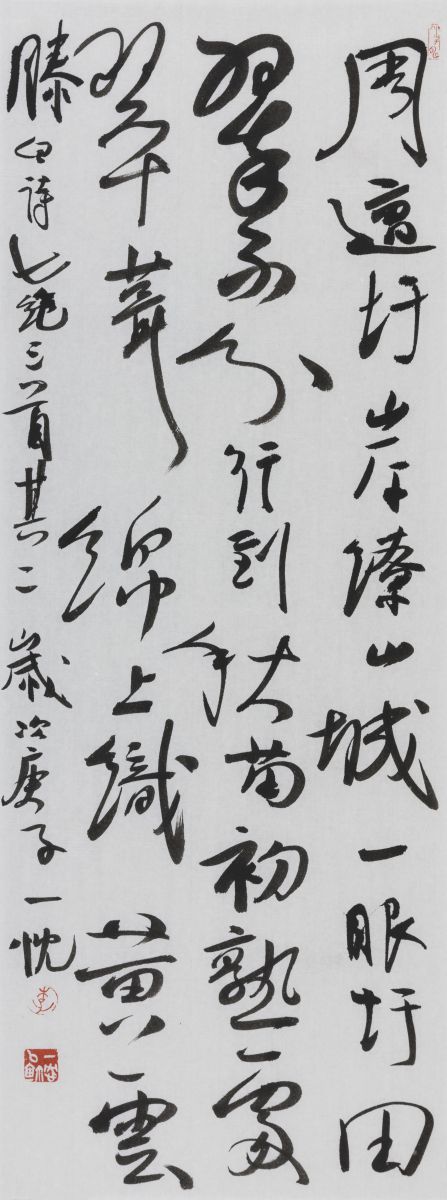 周遭圩岸繚山城一眼圩田
翠不分行到秋苗初熟處
翠茸綿上織黄雲
滕白詩七絶三首其二歲次庚子一忱